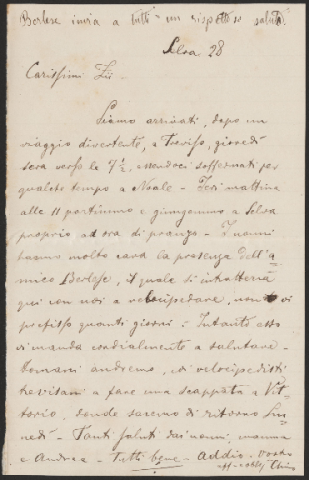 Berlese invia a tutti un rispettoso saluto
Selva 28
Carissimi Zii -
Siamo arrivati, dopo un
viaggio divertente, a Treviso, giovedì
sera verso le 7 1/2, essendoci soffermati per
qualche tempo a Noale - Ieri mattina
alle 11 partimmo e giungemmo a Selva
proprio ad ora di pranzo - I nonni
hanno molto cara la presenza dell'a-
mico Berlese, il quale si intratterrà
qui con noi a velocipedare, non so
prefisso quanti giorni: Intanto esso
vi manda cordialmente a salutare -
Domani andremo, coi velocipedisti
trevisani a fare una scappata a Vit-
torio, donde saremo di ritorno Lu-
nedì - Tanti saluti dai nonni, mamma
e Andrea - Tutti bene - Addio - Vostro
aff.